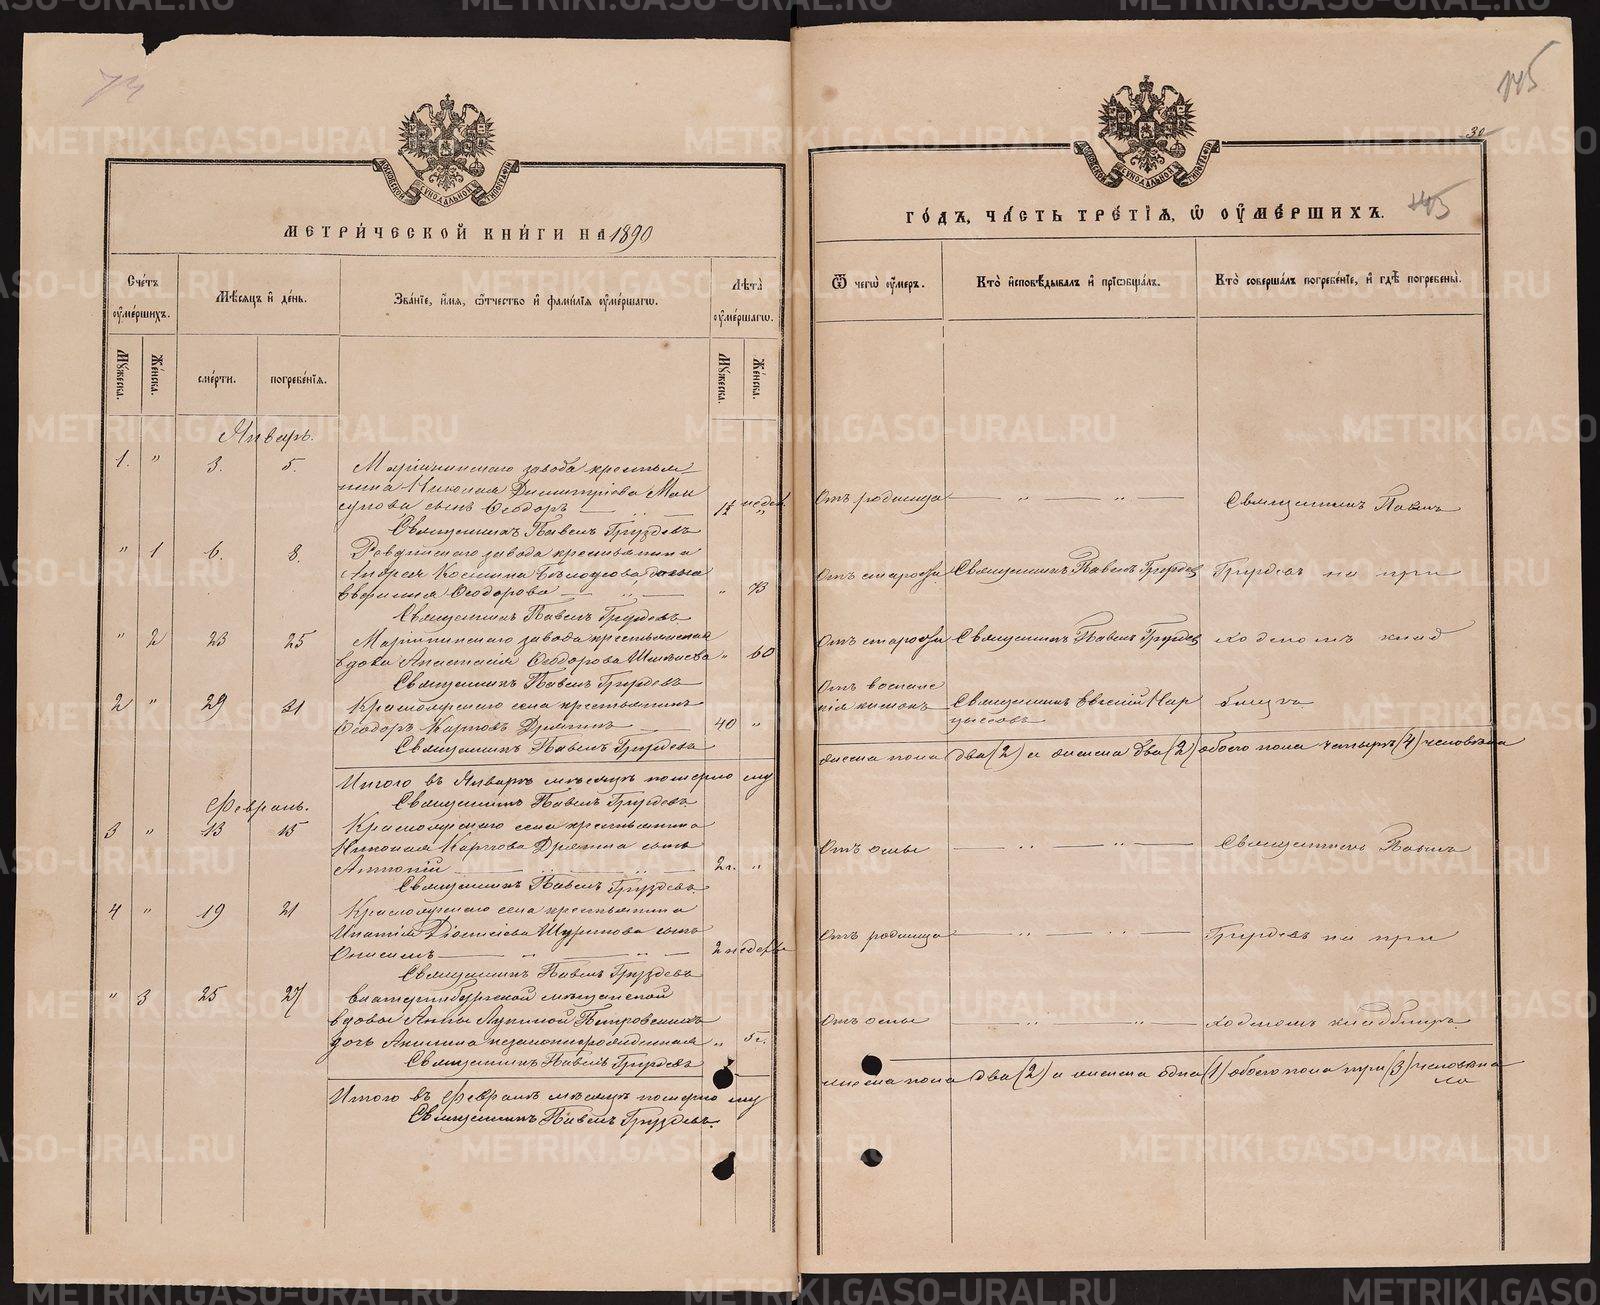 74
МЕТРИ́ЧЕСКОЙ КНИ́ГИ НА 1890
Сче́тъ ᲂу҆ме́ршихъ.
Мѣ́сяцъ и҆ де́нь.
Зва́нїе, и҆́мя, ѻ҆́тчество и҆ фами́лїя ᲂу҆ме́ршагѡ.
Лѣ́та ᲂу҆ме́ршагѡ.
Мꙋ́жеска.
Же́нска.
сме́рти.
погребе́нїя.
Мꙋ́жеска.
Же́нска.
Январь.
1. " 3. 5. Маріинскаго завода крестья-
нина Николая Димитріева
сынъ Ѳеодоръ 1½ недѣл. "
Священникъ Павелъ Груздевъ
" 1 6. 8. Ревдинскаго завода крестьянина
Андрея Козмина Бѣлоусова
Евфимія Ѳеодорова " 73
Священникъ Павелъ Груздевъ
" 2 23 25 Маріинскаго завода крестьянская
вдова Анастасія Ѳеодорова " 60
Священникъ Павелъ Груздевъ
2 " 29 31 Красноярскаго села крестьянинъ
Ѳеодоръ Карповъ Дрягинъ 40 "
Священникъ Павелъ Груздевъ
Итого въ Январѣ мѣсяцѣ померло му
Священникъ Павелъ Груздевъ
Февраль.
3 " 13 15 Красноярскаго села крестьянина
Николая Карпова Дрягина сынъ
Антоній 2 г. "
Священникъ Павелъ Груздевъ
4 " 19 21 Красноярскаго села крестьянина
Игнатія Діонисіева сынъ
Онисимъ 2 недѣли
Священникъ Павелъ Груздевъ
" 3 25 27 Екатеринбургской мѣщанской
вдовы Анны Петровскихъ
дочь Акилина незаконнорожденная " 5 г.
Священникъ Павелъ Груздевъ
Итого въ Февралѣ мѣсяцѣ померло му
Священникъ Павелъ Груздевъ.
145
30
145
ГО́ДЪ, ЧА́СТЬ ТРЕ́ТЇѦ, Ѡ҆ ОУ҆МЕ́РШИХЪ.
Ѿ чегѡ̀ ᲂу҆́меръ.
Кто̀ и҆сповѣ́дывалъ и҆ прїѻбща́лъ.
Кто̀ соверша́лъ погребе́нїе, и҆ гдѣ̀ погребены̀.
Отъ родимца " " Священникъ Павелъ
Отъ старости Священникъ Павелъ Груздевъ Груздевъ на при
Отъ старости Священникъ Павелъ Груздевъ ходскомъ клад
Отъ воспале
нія кишокъ Священникъ Евгеній Нар
циссовъ бищѣ
жеска пола два (2) и женска два (2) обоего пола четыре (4) человѣка
Отъ оспы " " Священникъ Павелъ
Отъ родимца " " Груздевъ на при
Отъ оспы " " ходскомъ кладбищѣ
жеска пола два (2) и женска одна (1) обоего пола три (3) человѣка
METRIKI.GASO-URAL.RU